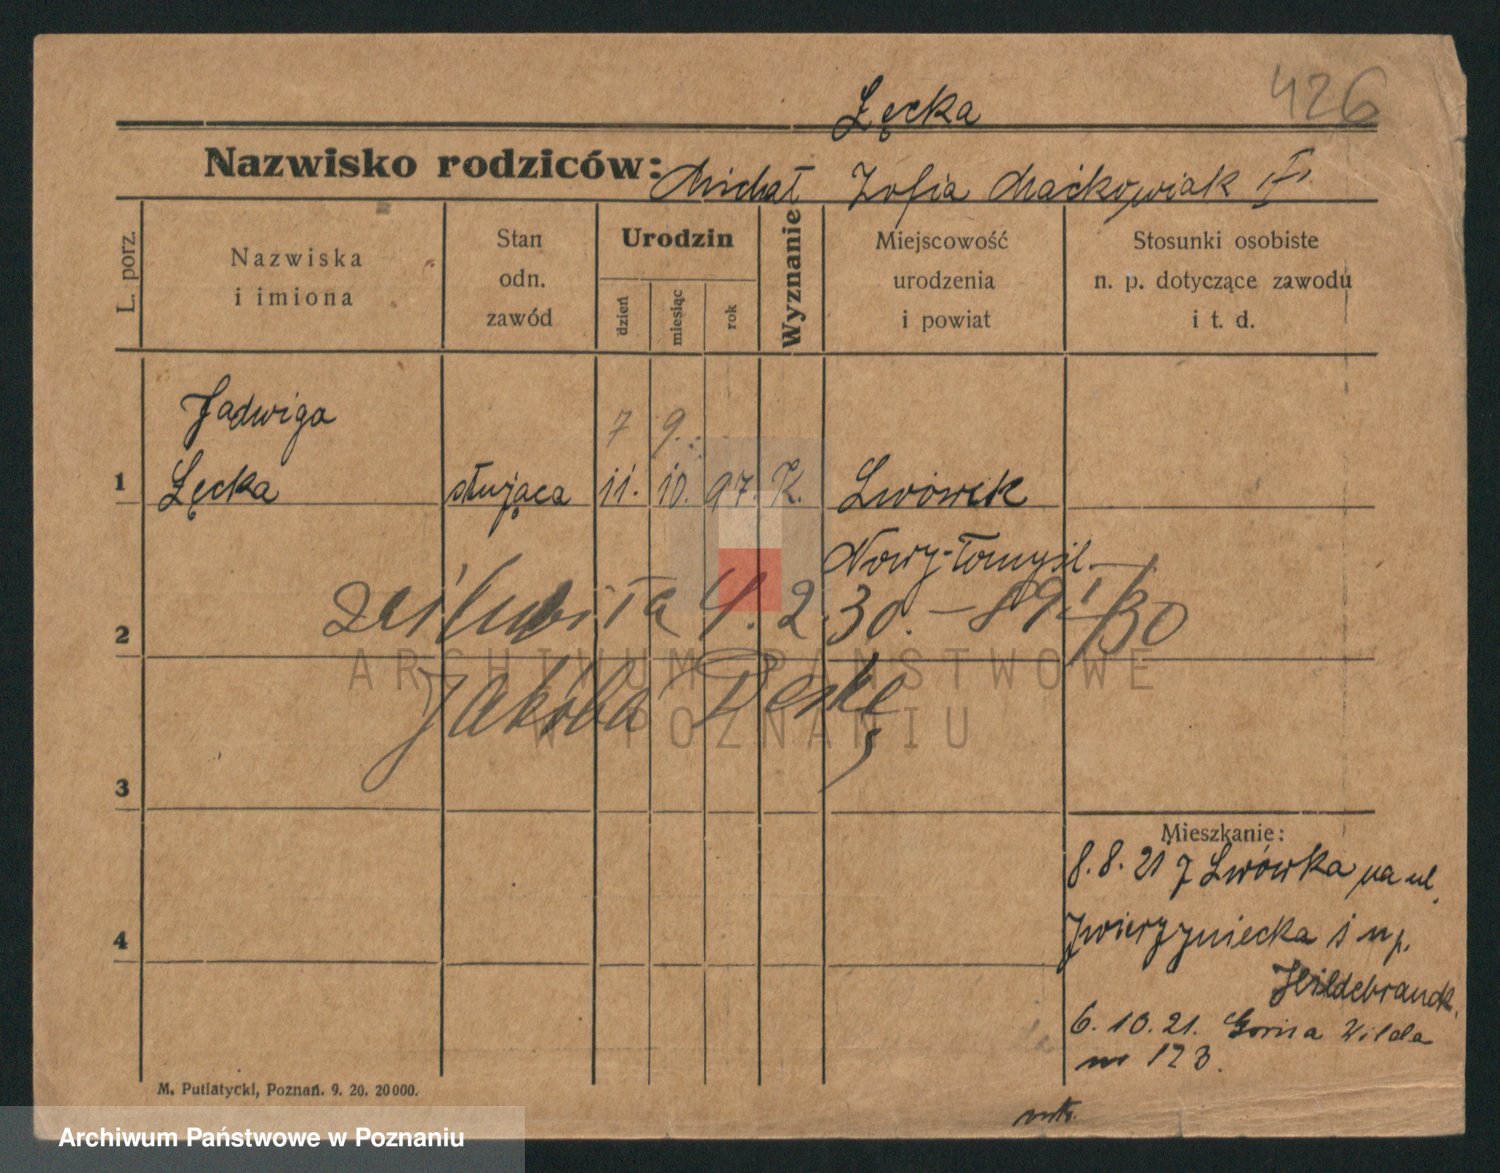 426
Łęcka
Nazwisko rodziców: Michał Zofia Maćkowiak
L. porz.
Nazwiska
i imiona
Stan
odn.
zawód
Urodzin
dzień
miesiąc
rok
Wyznanie
Miejscowość
urodzenia
i powiat
Stosunki osobiste
n. p. dotyczące zawodu
i t. d.
Jadwiga
7 9.
1 Łęcka służąca 11. 10. 97. K. Lwówek
Nowy-Tomyśl.
2 zaślubiła 4. 2. 30. – 89 I/30
Jakóba Deskę
3
4
Mieszkanie:
8. 8. 21 z Lwówka na ul.
Zwierzyniecka np.
Hildebrandt.
6. 10. 21. Gorna Wilda
173.
M. Putiatycki, Poznań. 9. 20. 20 000.
ARCHIWUM PAŃSTWOWE
W POZNANIU
Archiwum Państwowe w Poznaniu